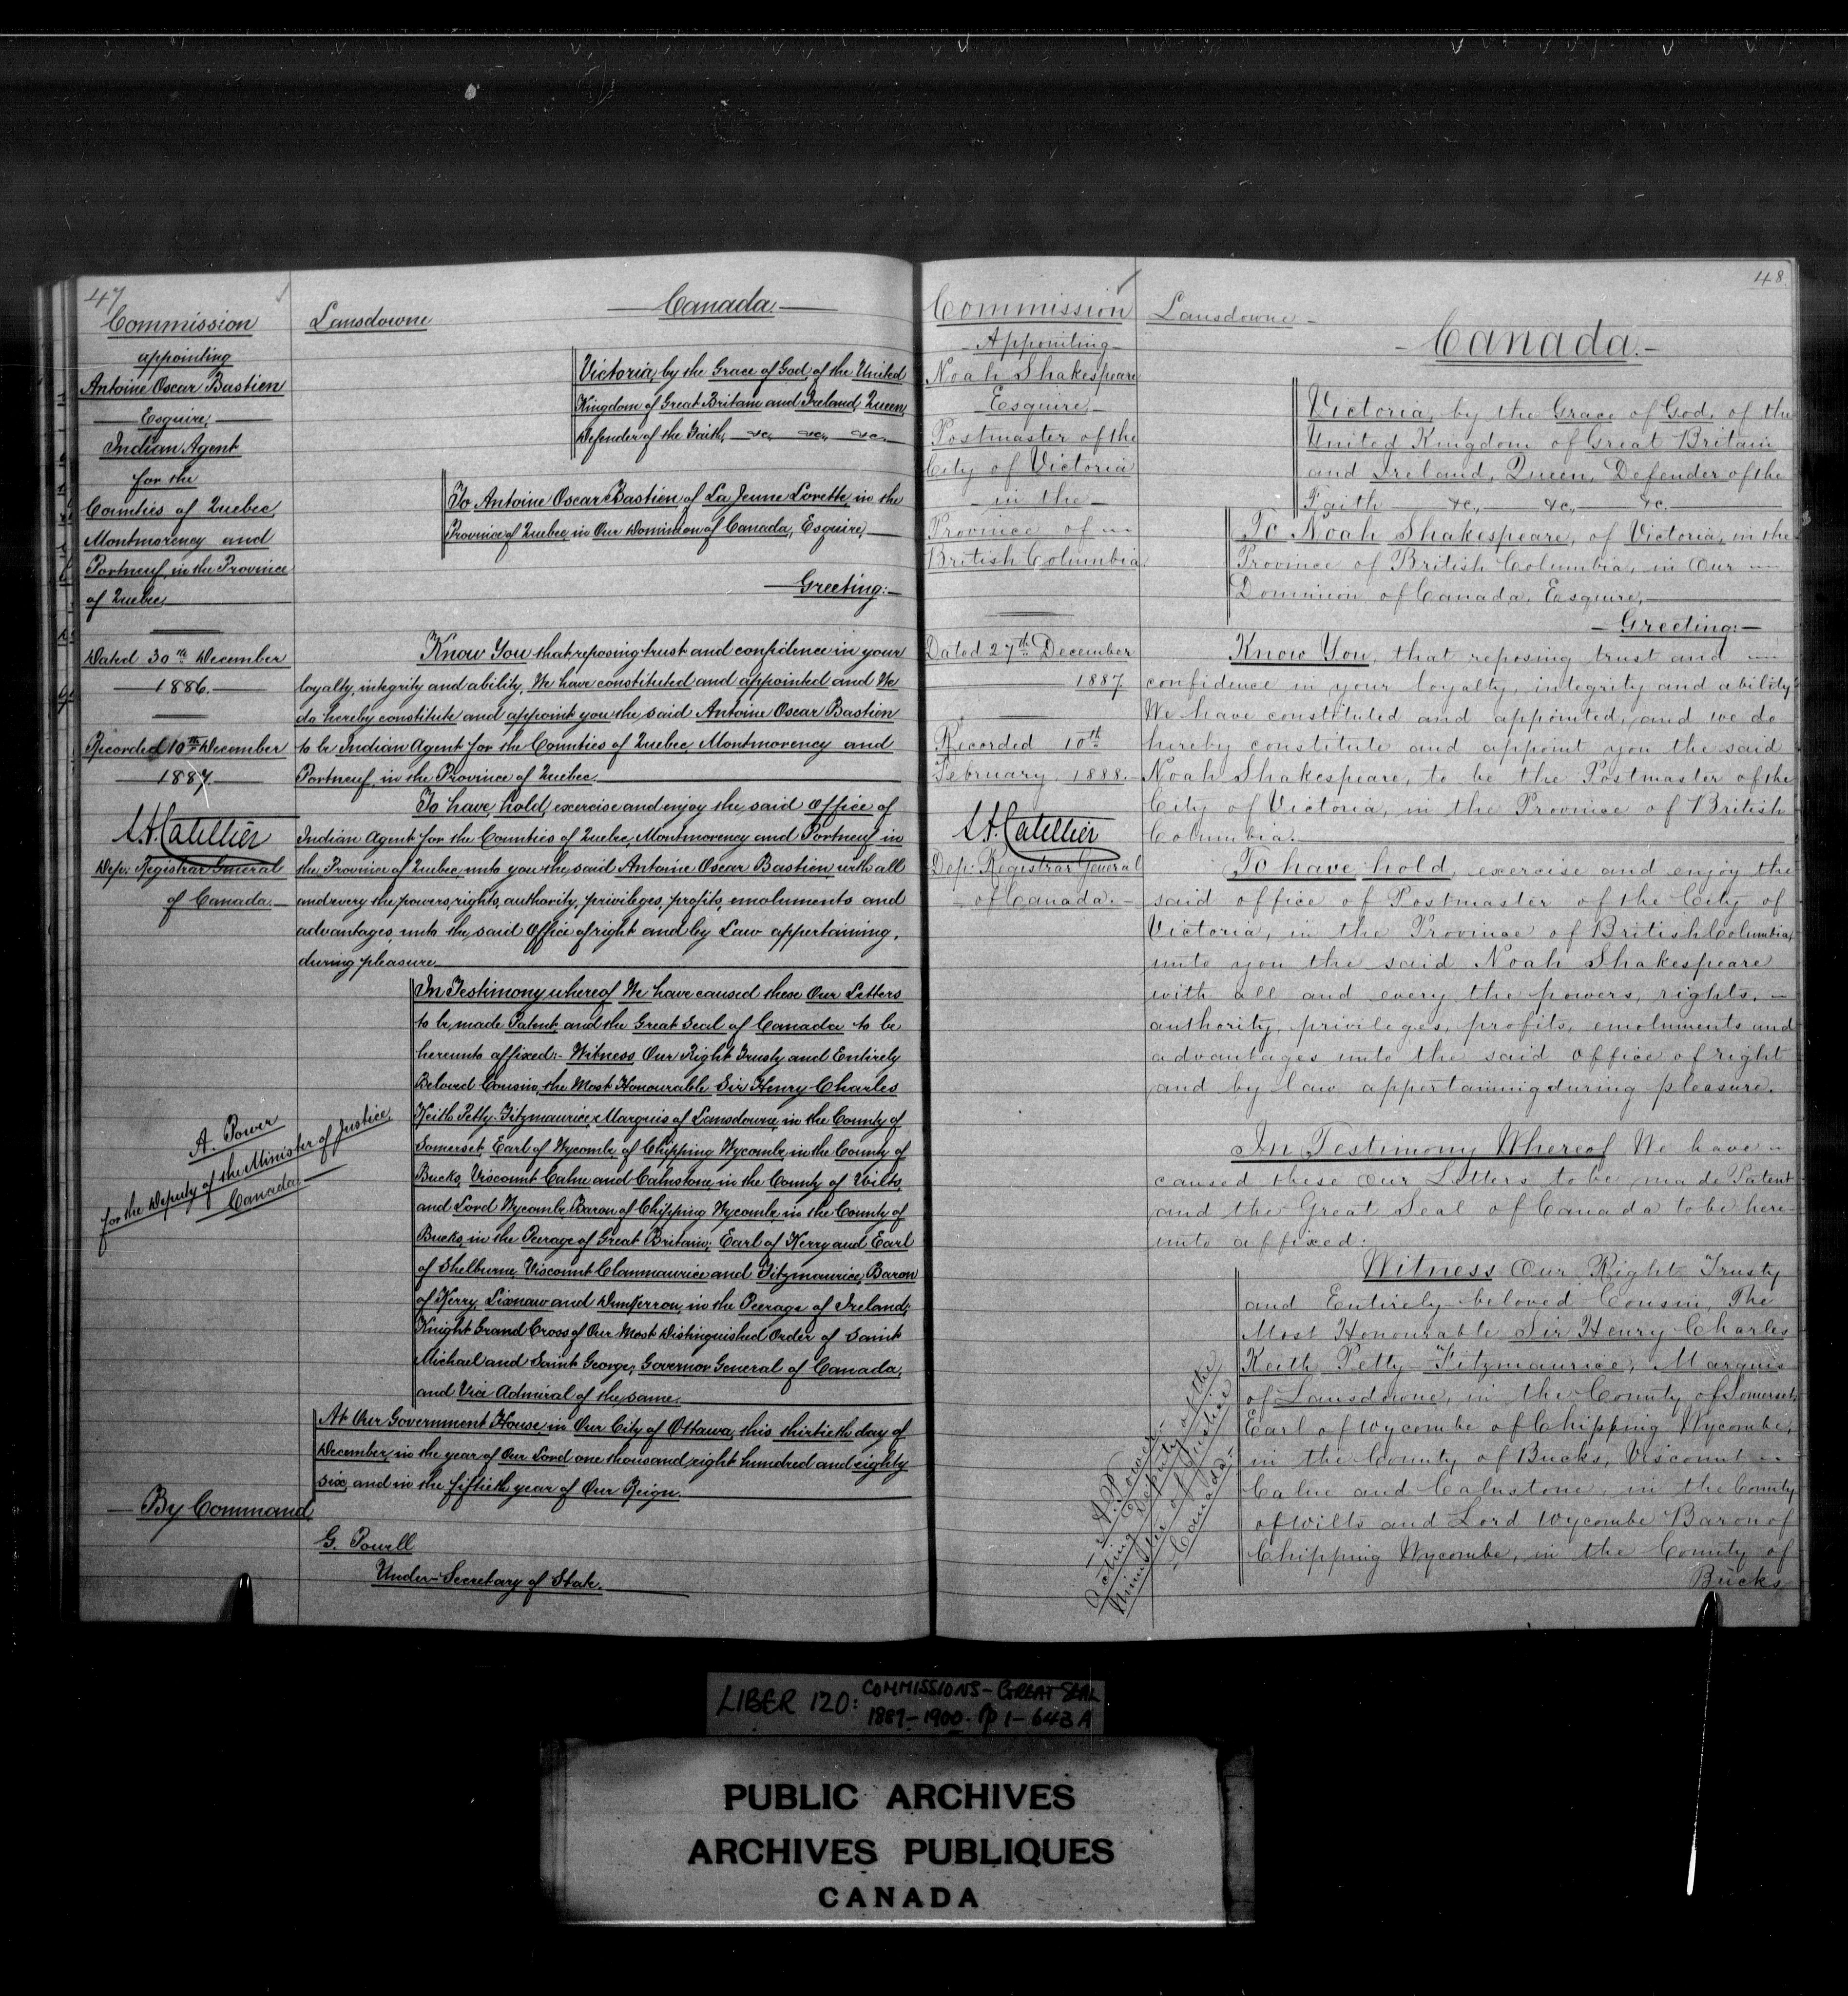 47
Commission
appointing
Antoine Oscar Bastien
Esquire,
Indian Agent
for the
Counties of Quebec,
Montmorency and
Portneuf, in the Province
of Quebec.
Dated 30th December
1886.
Recorded 10th December
1887.
L.A. Catellier
Dep: Registrar General
of Canada.
A. Power
for the Deputy of the Minister of Justice,
Canada.
By Command,
Lansdowne
Canada.
Victoria, by the Grace of God, of the United
Kingdom of Great Britain and Ireland, Queen,
Defender of the Faith, &c, &c, &c.
To Antoine Oscar Bastien of La Jeune Lorette, in the
Province of Quebec in Our Dominion of Canada, Esquire,
Greeting:
Know You that reposing trust and confidence in your
loyalty, integrity and ability, We have constituted and appointed and We
do hereby constitute and appoint you the said Antoine Oscar Bastien
to be Indian Agent for the Counties of Quebec, Montmorency and
Portneuf, in the Province of Quebec.
To have, hold, exercise and enjoy the said Office of
Indian Agent for the Counties of Quebec, Montmorency and Portneuf in
the Province of Quebec, unto you the said Antoine Oscar Bastien, with all
and every the powers, rights, authority, privileges, profits, emoluments and
advantages, unto the said Office of right and by Law appertaining,
during pleasure.
In Testimony whereof We have caused these Our Letters
to be made Patent, and the Great Seal of Canada to be
hereunto affixed:- Witness, Our Right Trusty and Entirely
Beloved Cousin, the Most Honourable Sir Henry Charles
Keith Petty-Fitzmaurice, Marquis of Lansdowne, in the County of
Somerset, Earl of Wycombe, of Chipping Wycombe, in the County of
Bucks, Viscount Calne and Calnstone, in the County of Wilts,
and Lord Wycombe, Baron of Chipping Wycombe, in the County of
Bucks, in the Peerage of Great Britain; Earl of Kerry and Earl
of Shelburne, Viscount Clanmaurice and Fitzmaurice, Baron
of Kerry, Lixnaw and Dunkerron, in the Peerage of Ireland;
Knight Grand Cross of Our Most Distinguished Order of Saint
Michael and Saint George; Governor General of Canada,
and Vice Admiral of the same.
At Our Government House in Our City of Ottawa, this thirtieth day of
December, in the year of Our Lord one thousand eight hundred and eighty
six, and in the fiftieth year of Our Reign.
G. Powell
Under-Secretary of State.
48
Commission
Appointing
Noah Shakespeare
Esquire,
Postmaster of the
City of Victoria
in the
Province of
British Columbia
Dated 27th December
1887.
Recorded 10th
February 1888.
L.A. Catellier
Dep: Registrar General
of Canada.
A. Power
Acting Deputy of the
Minister of Justice
Canada
Lansdowne
Canada.
Victoria, by the Grace of God, of the
United Kingdom of Great Britain
and Ireland, Queen, Defender of the
Faith &c, &c, &c.
To Noah Shakespeare, of Victoria, in the
Province of British Columbia, in Our
Dominion of Canada, Esquire,
Greeting:
Know You, that reposing trust and
confidence in your loyalty, integrity and ability
We have constituted and appointed, and we do
hereby constitute and appoint you the said
Noah Shakespeare, to be the Postmaster of the
City of Victoria, in the Province of British
Columbia.
To have, hold, exercise and enjoy the
said office of Postmaster of the City of
Victoria, in the Province of British Columbia,
unto you the said Noah Shakespeare
with all and every the powers, rights,
authority, privileges, profits, emoluments and
advantages unto the said office of right
and by law appertaining during pleasure.
In Testimony Whereof We have
caused these Our Letters to be made Patent
and the Great Seal of Canada to be here-
unto affixed:
Witness Our Right Trusty
and Entirely beloved Cousin, The
Most Honourable Sir Henry Charles
Keith Petty Fitzmaurice, Marquis
of Lansdowne, in the County of Somerset,
Earl of Wycombe of Chipping Wycombe,
in the County of Bucks, Viscount
Calne and Calnstone, in the County
of Wilts and Lord Wycombe Baron of
Chipping Wycombe, in the County of
Bucks
LIBER 120: COMMISSIONS - GREAT SEAL
1887-1900. pp 1-643A
PUBLIC ARCHIVES
ARCHIVES PUBLIQUES
CANADA